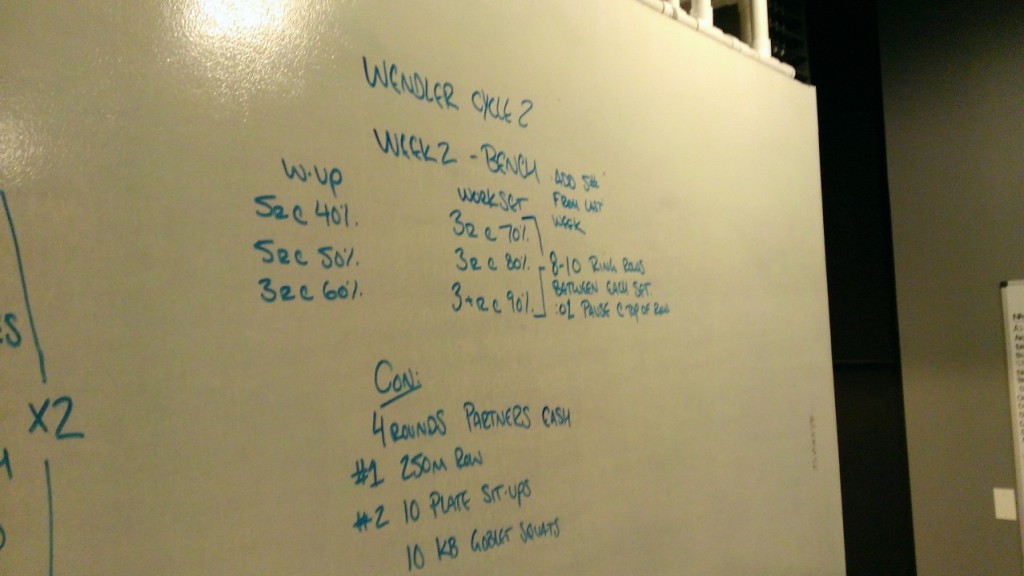 WENDLER CYCLE 2
WEEK 2 - BENCH
W.UP
5R C 40%.
5R C 50%.
3R C 60%.
WORK SET
3R C 70%.
3R C 80%.
3+R C 90%.
ADD 5#
FROM LAST
WEEK
8-10 RING ROWS
BETWEEN EACH SET
:01 PAUSE C TOP OF ROW
CON:
4 ROUNDS PARTNERS EACH
#1 250M ROW
#2 10 PLATE SIT-UPS
10 KB GOBLET SQUATS
X2